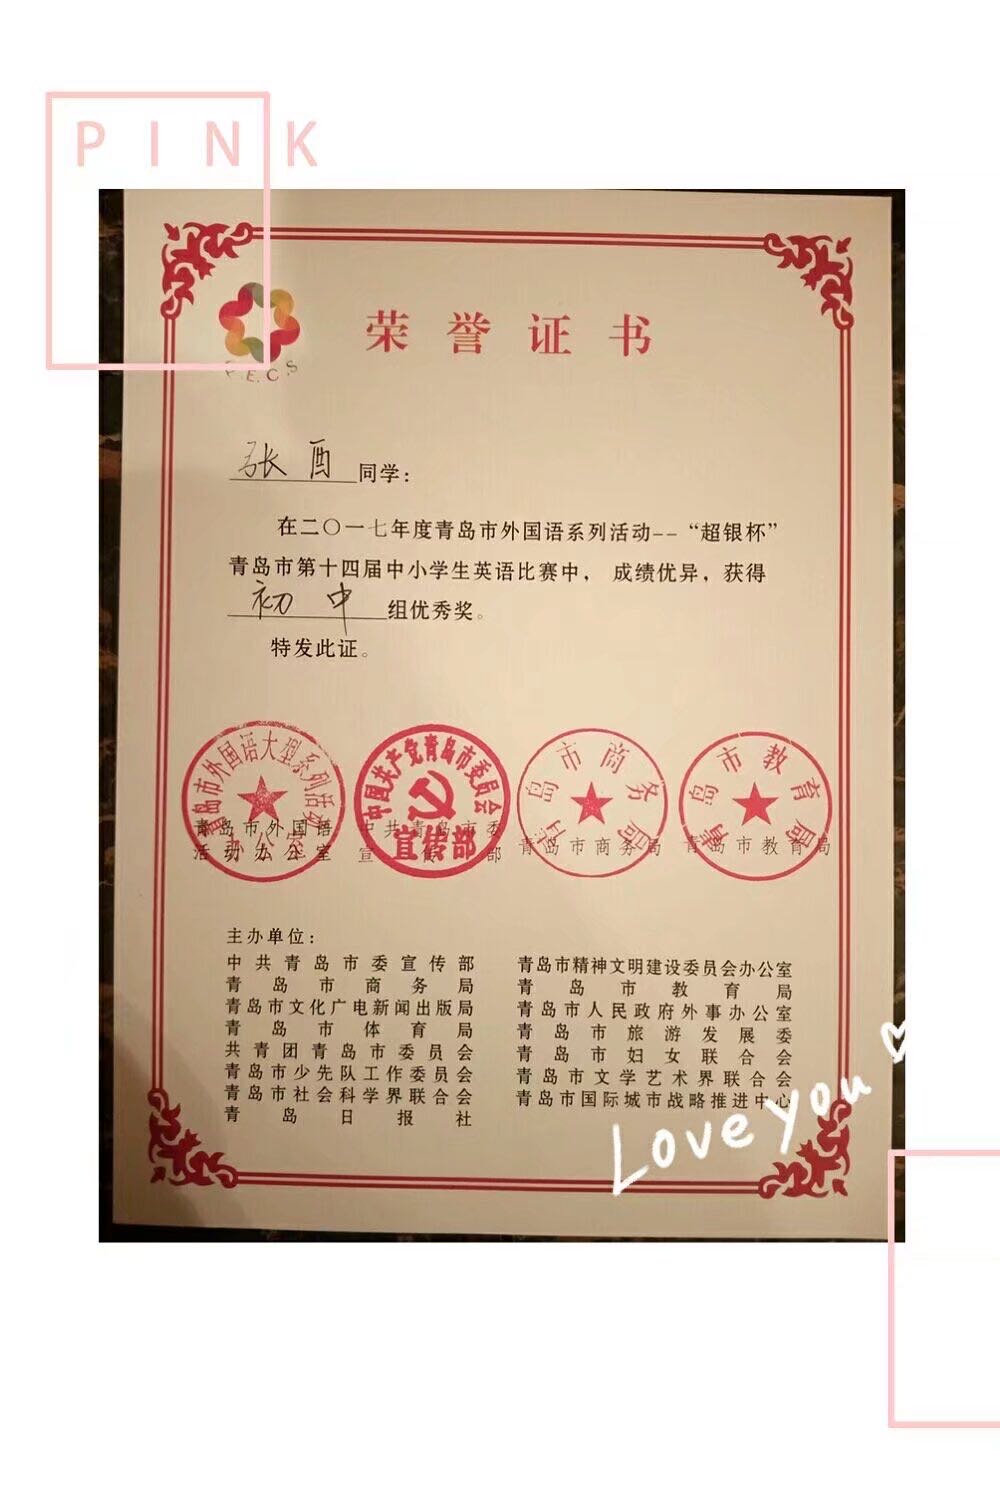 PINK
荣誉证书
P.E.C.S
张酉同学：
在二〇一七年度青岛市外国语系列活动--“超银杯”
青岛市第十四届中小学生英语比赛中， 成绩优异，获得
初中组优秀奖。
特发此证。
青岛市外国语大型系列活动办公室
中国共产党青岛市委员会
宣传部
青岛市商务局
青岛市教育局
青岛市外国语
活动办公室
中共青岛市委
宣传部
青岛市商务局
青岛市教育局
主办单位：
中共青岛市委宣传部
青岛市精神文明建设委员会办公室
青岛市商务局
青岛市教育局
青岛市文化广电新闻出版局
青岛市人民政府外事办公室
青岛市体育局
青岛市旅游发展委
共青团青岛市委员会
青岛市妇女联合会
青岛市少先队工作委员会
青岛市文学艺术界联合会
青岛市社会科学界联合会
青岛市国际城市战略推进中心
青岛日报社
Love you